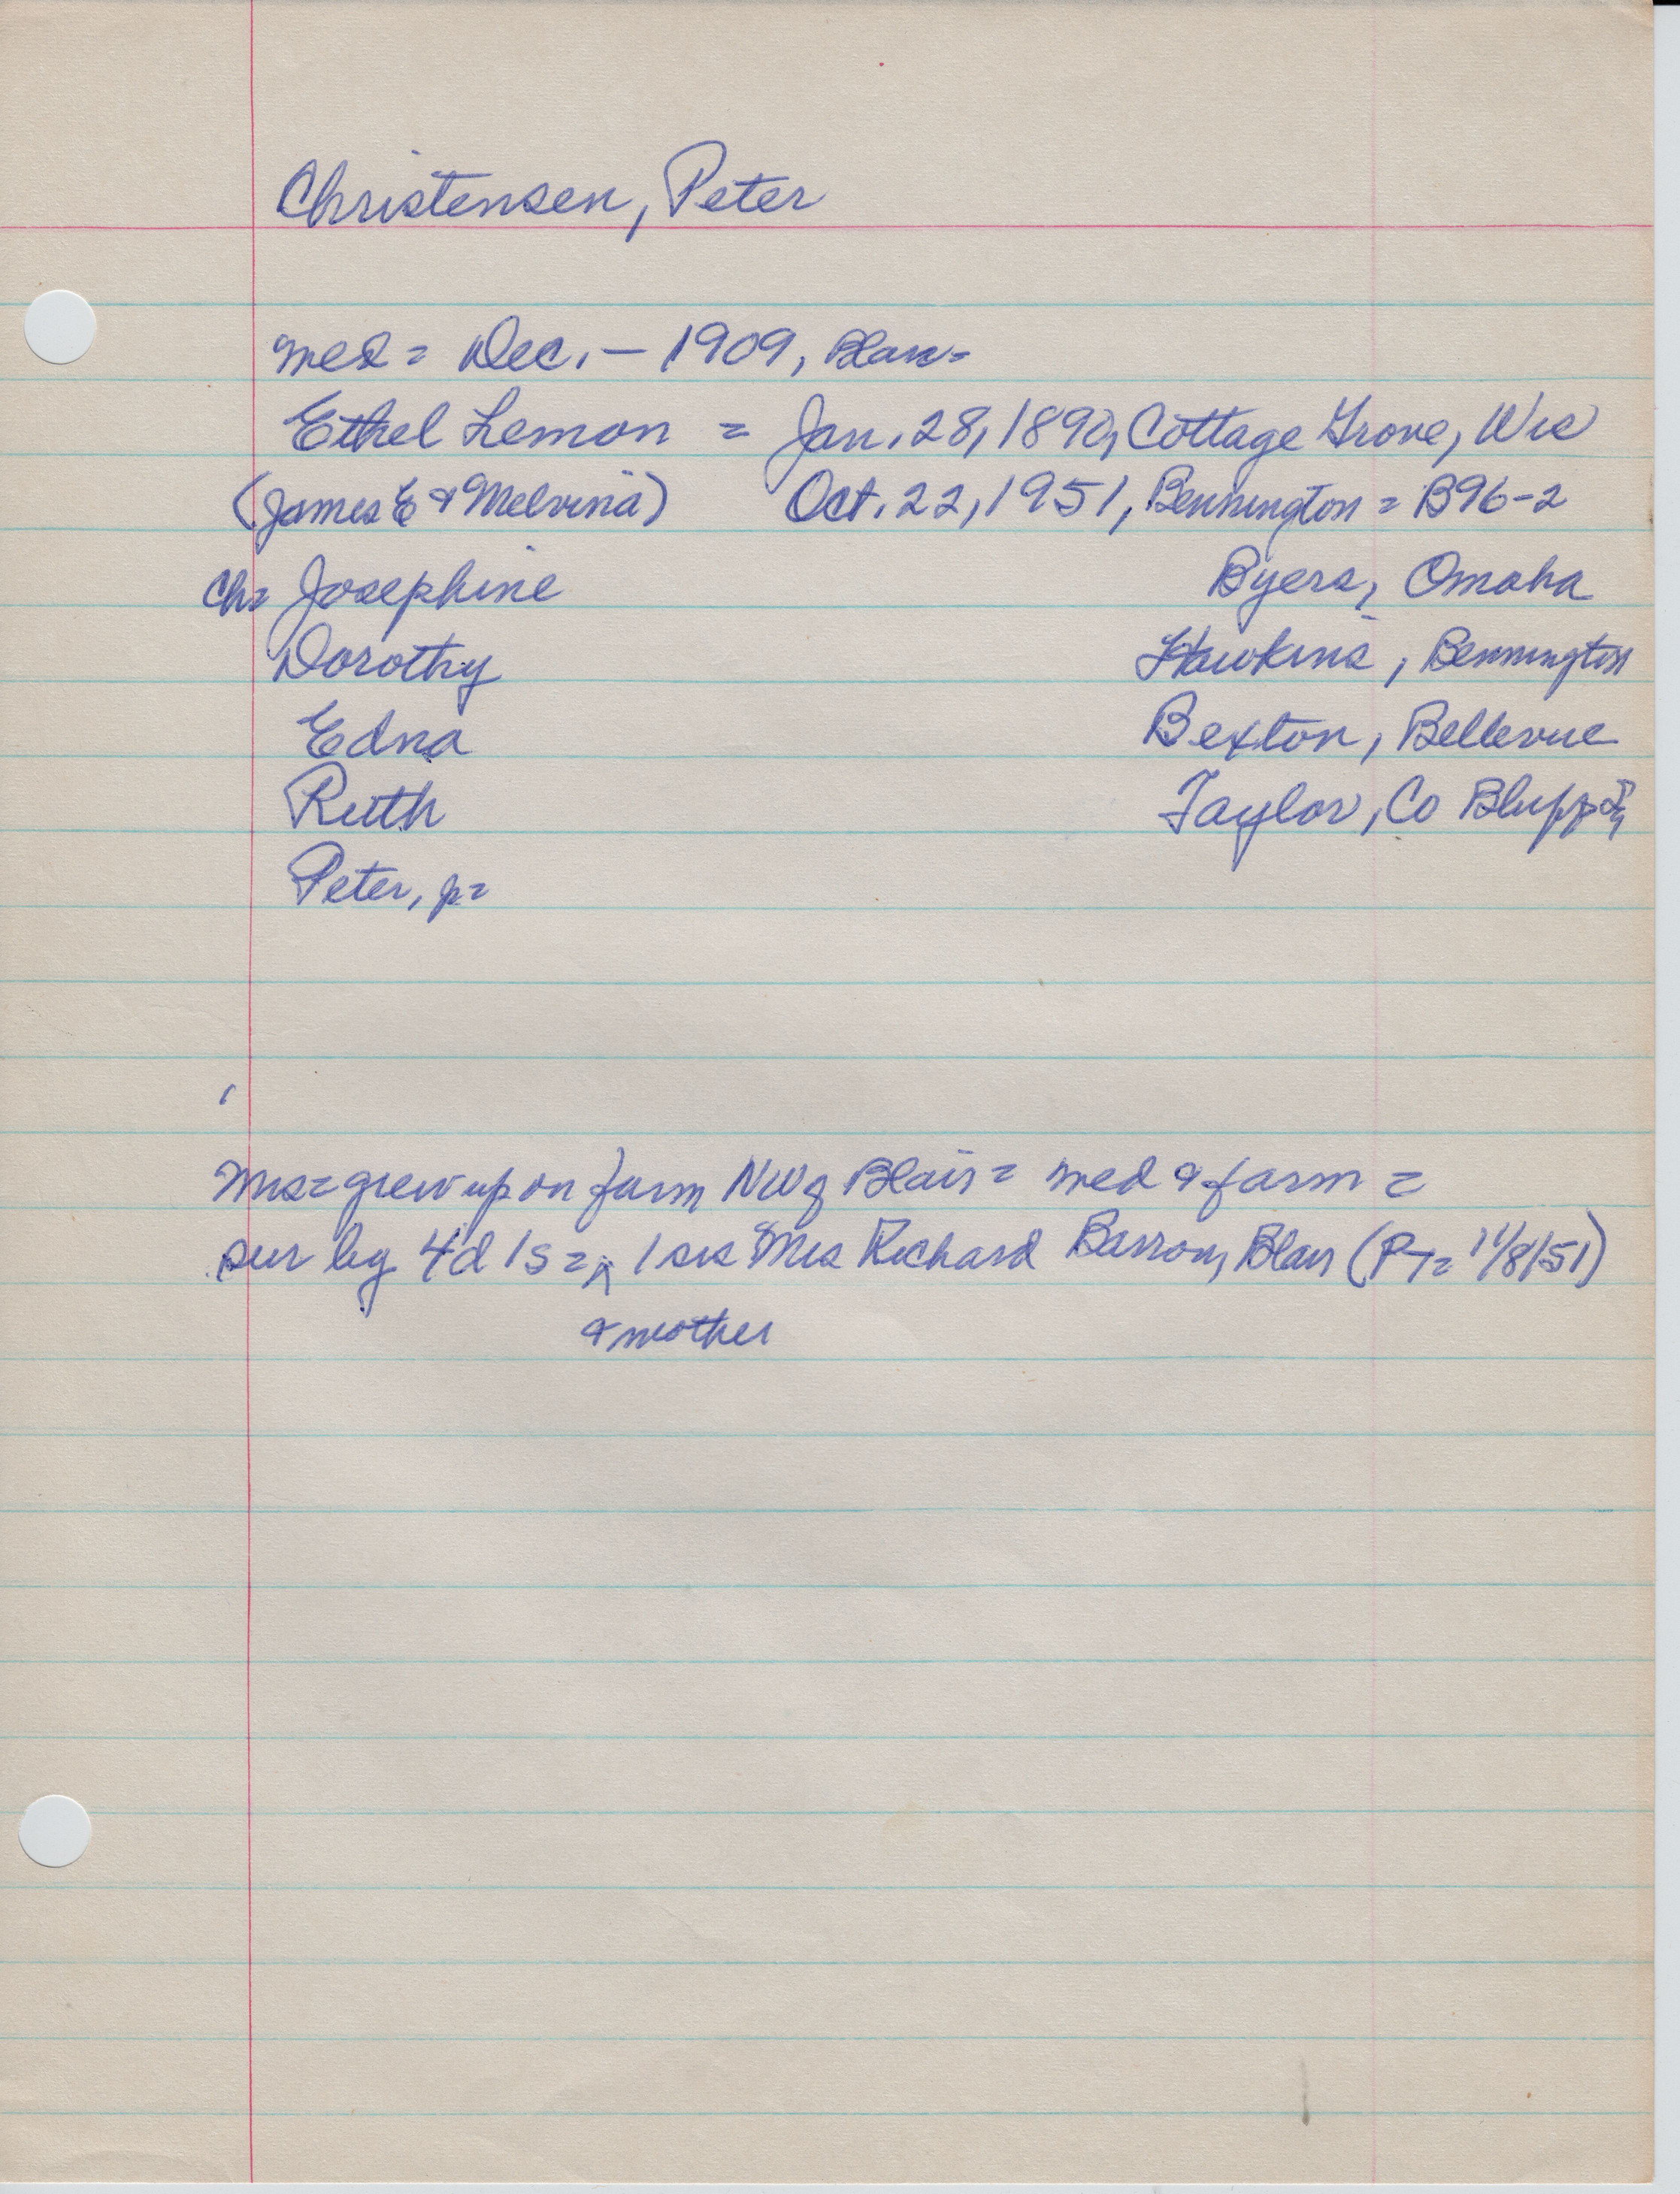 Christensen, Peter
med = Dec. – 1909, Blair =
Ethel Lemon = Jan. 28, 1890, Cottage Grove, Wis
(James E & Melvina) Oct. 22, 1951, Bennington = B96-2
Ch = Josephine Byers, Omaha
Dorothy Hawkins, Bennington
Edna Bexton, Bellevue
Ruth Taylor, Co Bluffs
Peter, jr =
Mrs = grew up on farm NW of Blair = med & farm =
sur by 4d 1s = ^ 1 sis Mrs Richard Barrow, Blair (PT = 11/8/51)
& mother